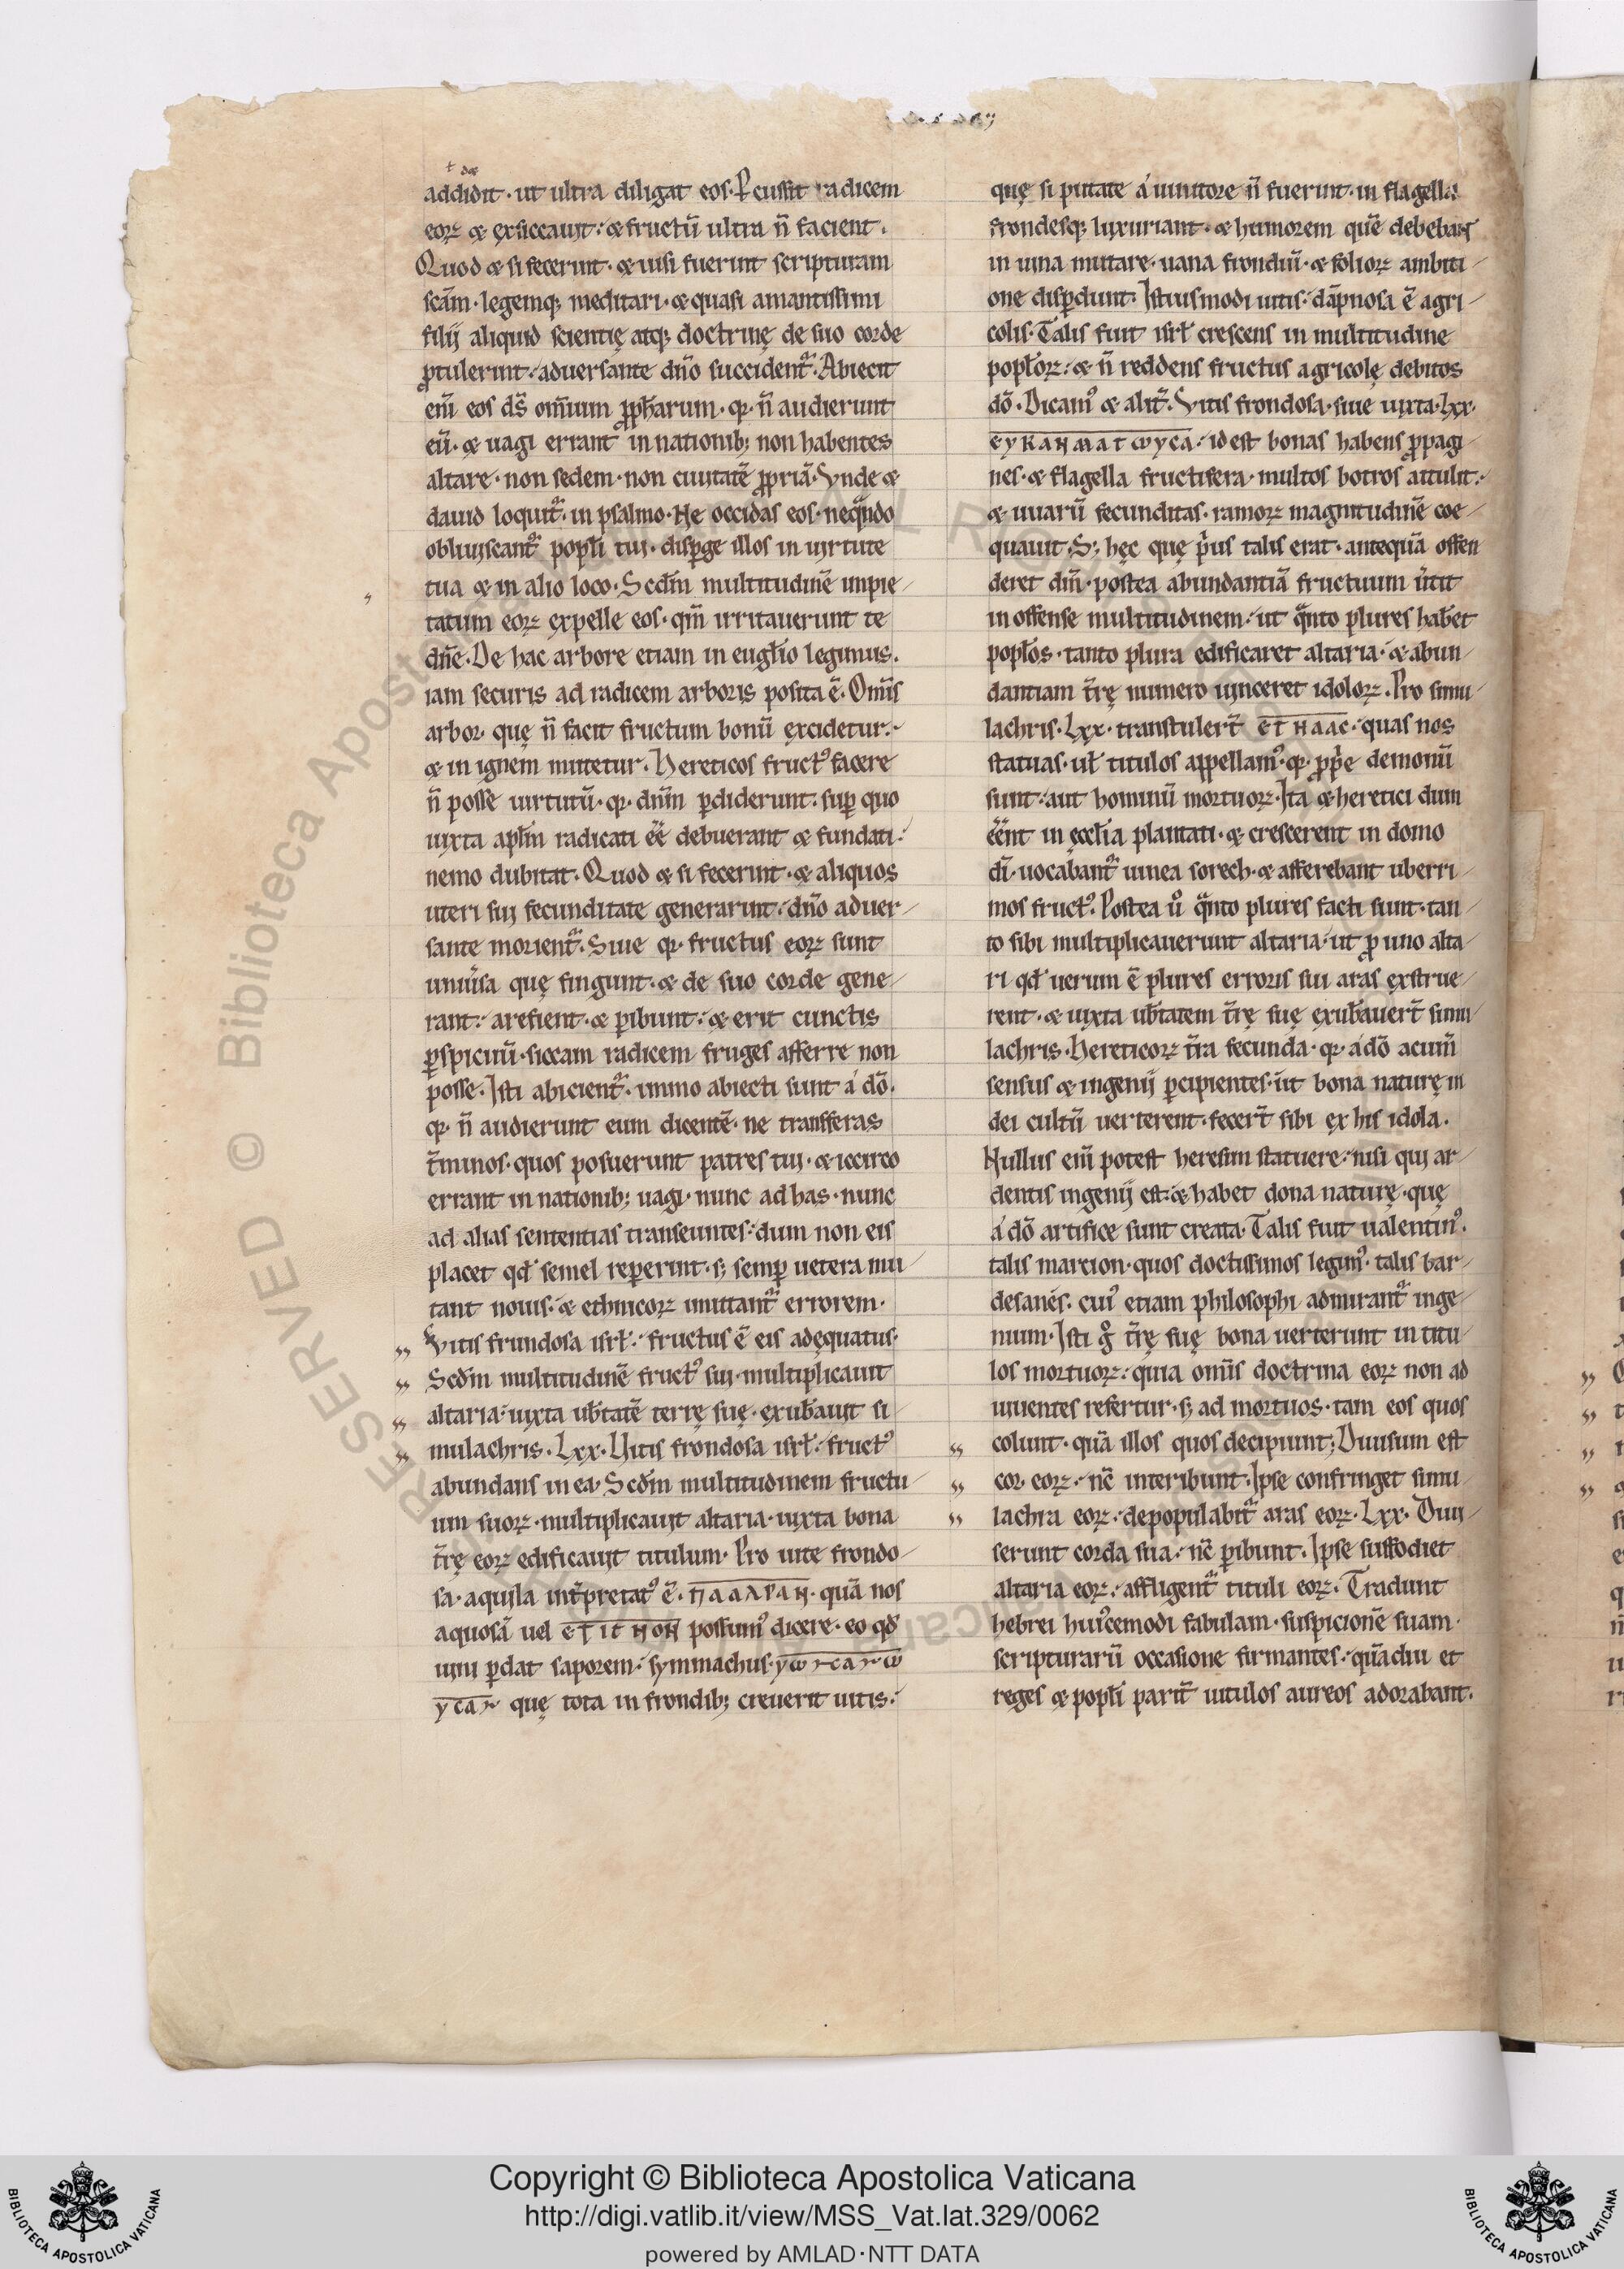 addidit · ut ultra diligat eos · P̱cussit radicem
eoꝝ & exsiccauit: & fructū ultra n̄ facient .
Quod & si fecerint · & uisi fuerint scripturam
scām · legemq; meditari · & quasi amantissimi
filij aliquid scientię atq; doctrinę de suo corde
ꝓtulerint: aduersante dn̄o succident̄ · Abiecit
eni̅ eos ds̄ om̄ium ꝓph̄arum · q̄ · n̄ audierunt
eū · & uagi errant in nationib; non habentes
altare · non sedem · non ciuitatē ꝓpriā · Vnde &
dauid loquit̄ · in psalmo · Ne occidas eos · neqn̄do
obliuiscant̄ popl̄i tui · disꝑge illos in uirtute
tua & in alio loco · Scd̄m multitudinē impie-
tatum eoꝝ expelle eos · qm̄ irritauerunt te
dn̄e · De hac arbore etiam in eugl̄io legimus .
iam securis ad radicem arboris posita ē · Om̄is
arbor · quę n̄ facit fructum bonū excidetur:
& in ignem mittetur · Hereticos fruct⁹ facere
n̄ posse uirtutū · q̄ · dn̄m ꝑdiderunt · suꝑ quo
iuxta apl̄m radicati eē debuerant & fundati:
nemo dubitat · Quod & si fecerint · & aliquos
uteri sui fecunditate generarint: dn̄o aduer-
sante morient̄ · Siue q̄ · fructus eoꝝ sunt
uniu̅sa quę fingunt · & de suo corde gene-
rant: arefient · & ꝑibunt: & erit cunctis
ꝑspicuū · siccam radicem fruges afferre non
posse · Isti abicient̄ · immo abiecti sunt á dō .
q̄ · n̄ audierunt eum dicentē · ne transferas
t̄minos · quos posuerunt patres tui · & iccirco
errant in nationib; uagi · nunc ad has · nunc
ad alias sententias transeuntes: dum non eis
placet qd̄ semel repererint · s; semꝑ uetera mu-
tant nouis · & ethnicoꝝ imittant̄ errorem ·
Vitis frundosa isrl̄: fructus ē eis adęquatus ·
Scd̄m multitudinē fruct⁹ sui · multiplicauit
altaria: iuxta ub̄tatē terrę suę · exub̄auit si
mulachris · Lxx · Vitis frondosa isrl̄: fruct⁹
abundans in ea · Scd̄m multitudinem fructu-
um suoꝝ · multiplicauit altaria · iuxta bona
t̄rę eoꝝ edificauit titulum · Pro uite frondo-
sa · aquila int̄pretat⁹ ē · quā nos
aquosā uel possum⁹ dicere · eo qd̄
uini ꝑdat saporem: symmachus ·
quę tota in frondib; creuerit uitis:
quę si putate á uinitore n̄ fuerint · in flagella
frondesq; luxuriant · & humorem quē debebant
in uina mutare · uana frondiū · & folioꝝ ambiti-
one disꝑdunt · Istiusmodi uitis: dāpnosa ē agri-
colis · Talis fuit isrl̄ crescens in multitudine
popl̄oꝝ: & n̄ reddens fructus agricolę debitos
dō · Dicam⁹ & alit̄ · Vitis frondosa · siue iuxta · Lxx ·
ЄYKAHMATωYCA: id est bonas habens ꝓpagi
nes · & flagella fructifera · multos botros attulit:
& uuarū fecunditas · ramoꝝ magnitudinē coe-
quauit · S; hęc quę p̄us talis erat · antequā offen
deret dm̄ · postea abundantiā fructuum u̅tit
in offense multitudinem: ut qn̄to plures hab̄et
popl̄os · tanto plura edificaret altaria: & abun-
dantiam t̄rę numero uinceret idoloꝝ · Pro simu-
lachris · Lxx · transtulert̄ ЄTHAAC: quas nos
statuas · ul̄ titulos appellam⁹ · q̄ · ꝓp̄e demonū
sunt: aut hominū mortuoꝝ · Ita & heretici dum
eēnt in ęccl̄ia plantati · & crescerent in domo
di̅ · uocabant̄ uinea sorech · & afferebant uberri-
mos fruct⁹ · Postea u⁰ qn̄to plures facti sunt · tan
to sibi multiplicauerunt altaria · ut ꝓ uno alta-
ri qd̄ uerum ē plures erroris sui aras exstrue-
rent · & iuxta ub̄tatem t̄rę suę exub̄auert̄ simu-
lachris · Hereticoꝝ t̄ra fecunda · q̄ · á dō acum̄
sensus & ingenij ꝑcipientes · ut bona naturę in
dei cultū uerterent · fecert̄ sibi ex his idola .
Nullus eni̅ potest heresim statuere: nisi qui ar-
dentis ingenij est · & habet dona naturę · quę
á dō artifice sunt creata · Talis fuit ualentin⁹ ·
talis marcion · quos doctissimos legim⁹ · talis bar-
desanes · cui⁹ etiam philosophi admirant̄ inge-
nium · Isti g̊ t̄rę suę bona uerterunt in titu-
los mortuoꝝ: quia om̄is doctrina eoꝝ non ad
uiuentes refertur · s; ad mortuos · tam eos quos
colunt · quā illos quos decipiunt; Diuisum est
cor eoꝝ: nc̄ interibunt · Ipse confringet simu-
lachra eoꝝ: depopulabit̄ aras eoꝝ · Lxx · Diui-
serunt corda sua: nc̄ ꝑibunt · Ipse suffodiet
altaria eoꝝ: affligent̄ tituli eoꝝ · Tradunt
hebrei hui⁹cemodi fabulam · suspicionē suam ·
scripturarū occasione firmantes: quādiu et
reges & popl̄i parit̄ uitulos aureos adorabant ·
Copyright © Biblioteca Apostolica Vaticana
http://digi.vatlib.it/view/MSS_Vat.lat.329/0062
powered by AMLAD·NTT DATA